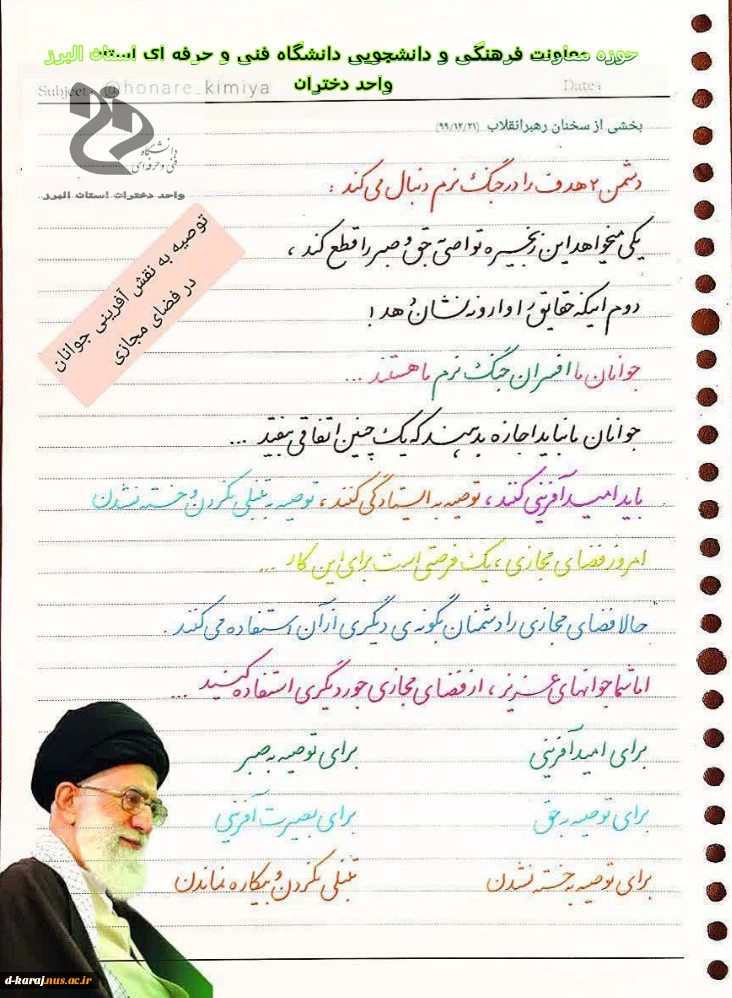 حوزه معاونت فرهنگی و دانشجویی دانشگاه فنی و حرفه ای استان البرز
واحد دختران
Subject: @honare_kimiya
Date:
بخشی از سخنان رهبرانقلاب (۹۹/۱۲/۲۱)
دانشگاه
فنی و حرفه‌ای
واحد دختران استان البرز
توصیه به نقش آفرینی جوانان
در فضای مجازی
دشمن ۲ هدف را در جنگ نرم دنبال می‌کند :
یکی میخواهد این زنجیره تواصی حق و صبر را قطع کند ،
دوم اینکه حقایق را وارونه نشان دهد !
جوانان ما افسران جنگ نرم ما هستند ...
جوانان ما نباید اجازه بدهند که یک چنین اتفاقی بیفتد ...
باید امیدآفرینی کنند ، توصیه به ایستادگی کنند ، توصیه به تنبلی نکردن و خسته نشدن
امروز فضای مجازی ، یک فرصتی است برای این کار ...
حالا فضای مجازی را دشمنان بگونه‌ی دیگری از آن استفاده می‌کنند .
اما شما جوانهای عزیز ، از فضای مجازی جور دیگری استفاده کنید ...
برای امیدآفرینی برای توصیه به صبر
برای توصیه به حق برای بصیرت آفرینی
برای توصیه به خسته نشدن تنبلی نکردن و بیکاره نماندن
d-karaj.nus.ac.ir